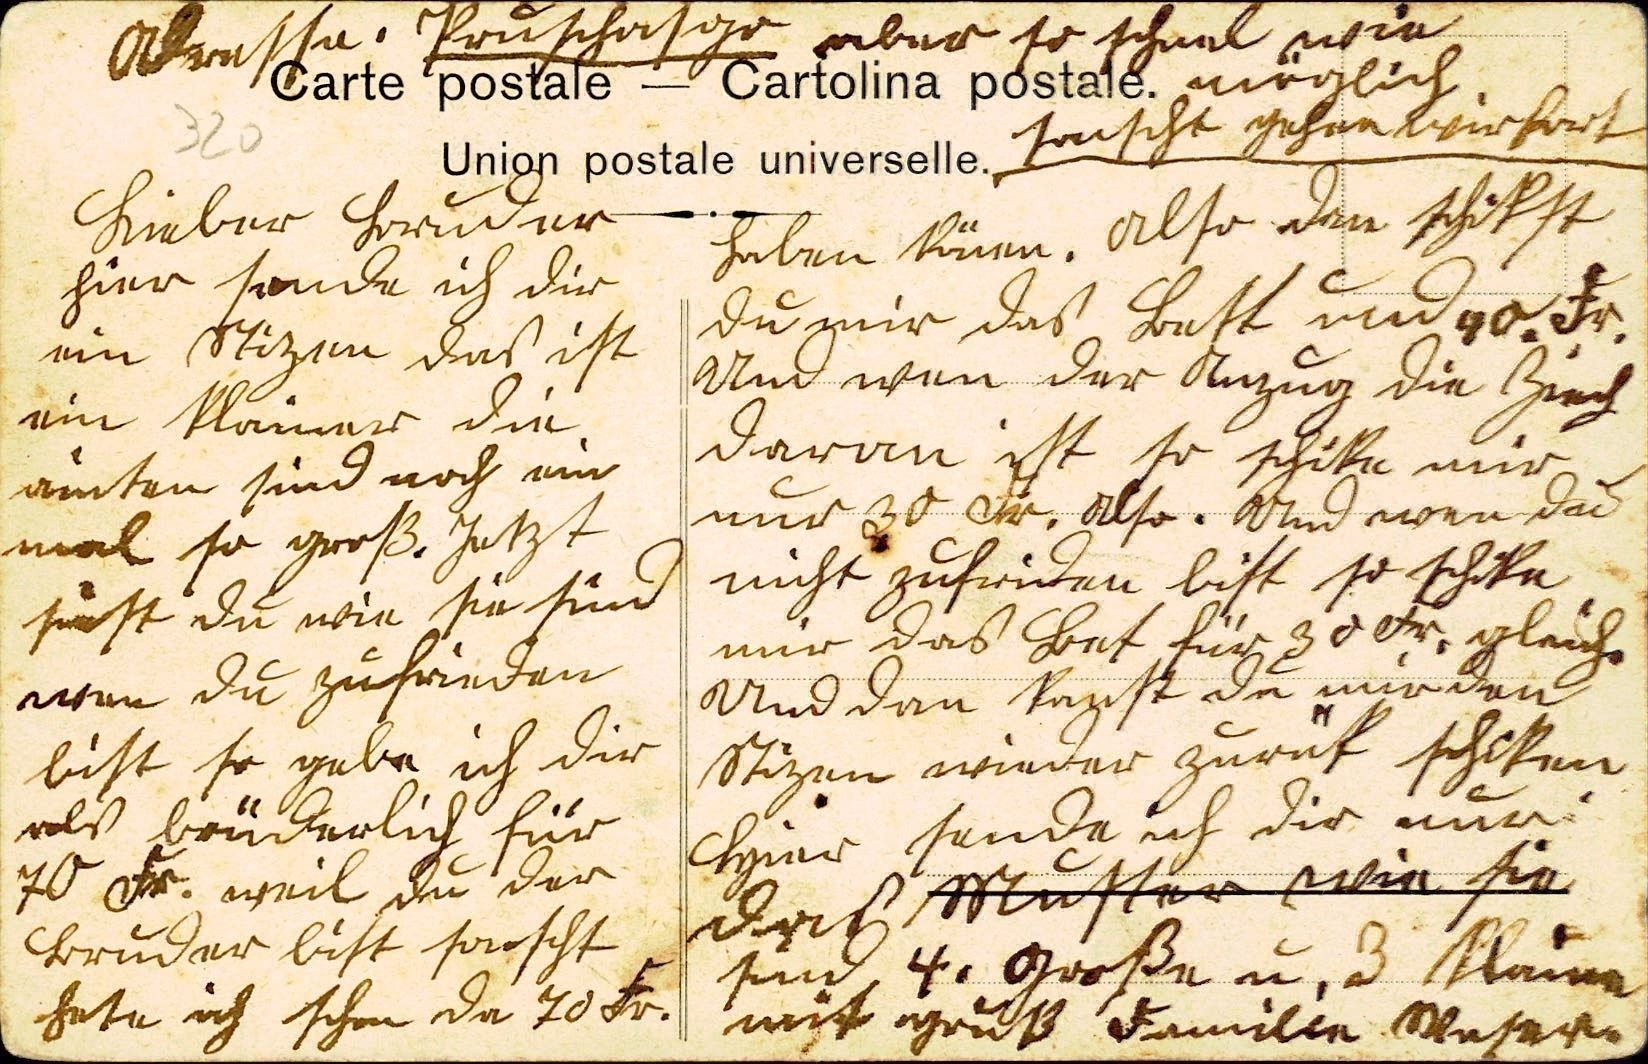 Adresse. Pruschasge aber so schnel wie
Carte postale — Cartolina postale. möglich
sonscht gehen wir fort
320
Union postale universelle.
Lieber Bruder
hier sende ich dir
ein Stizen das ist
ein kleiner die
sind noch ein
mal so groß. Jetzt
siest du wie sie sind
wen du zufrieden
bist so gebe ich dir
als brüderlich für
70 Fr. weil du der
Bruder bist sonscht
hete ich schon da 70 Fr.
haben könen. Also dan schikst
du mir das Bett und 40. Fr.
Und wen der Anzug die Ziech
daran ist so schike mir
nur 30 Fr. Also. Und wen du
nicht zufriden bist so schike
mir das Bet für 30 Fr. gleich.
Und dan kanst du mir den
Stizen wieder zurük schiken
Hier sende ich dir nur
das Muster wie sie
sind 4. Große u. 3 Kleine
mit gruß Familie